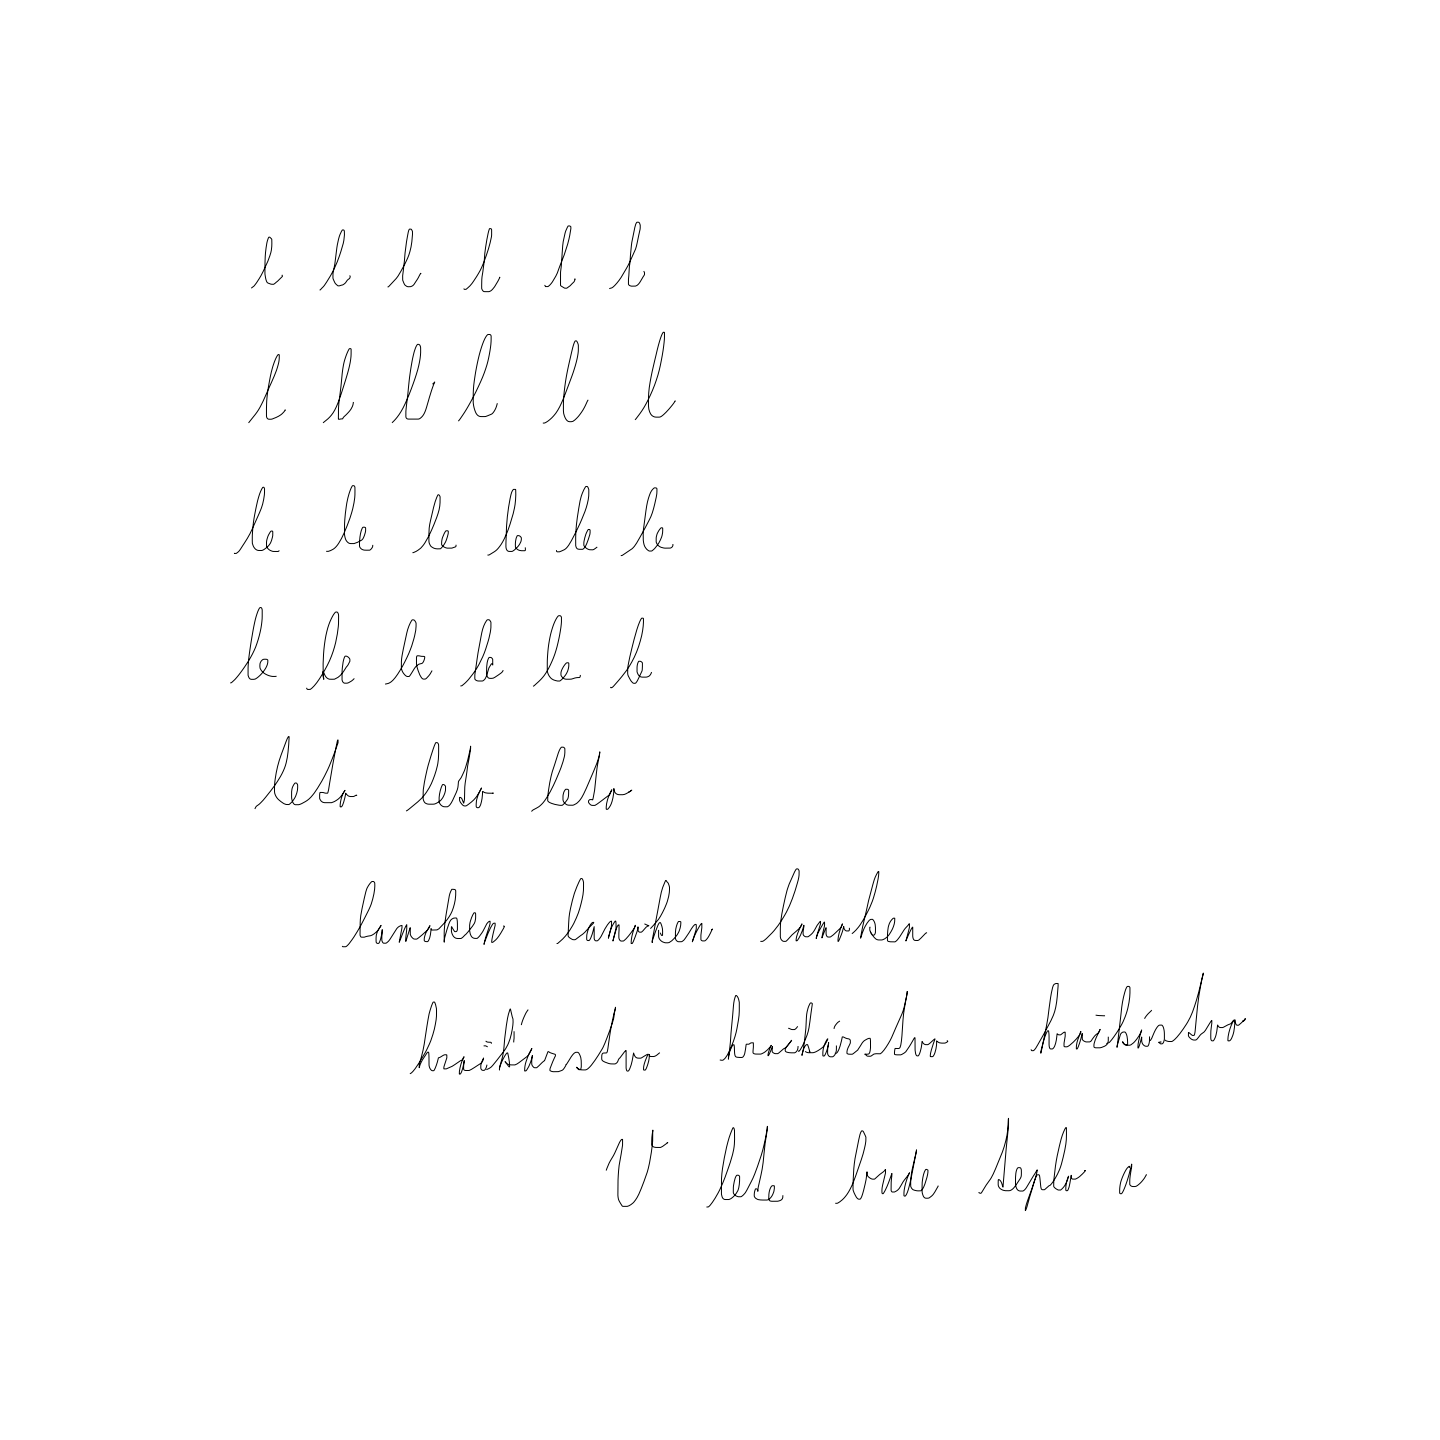 l l l l l l
l l l l l l
le le le le le le
le le le le le le
leto leto leto
lamoken lamoken lamoken
hračkárstvo hračkárstvo hračkástvo
V lete bude teplo a